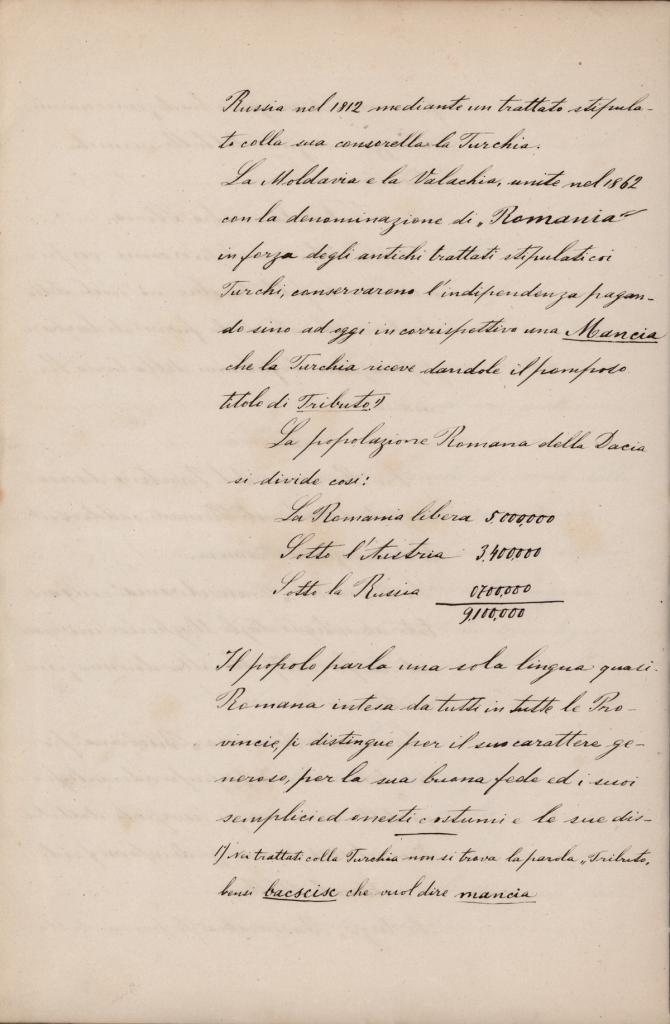 Russia nel 1812 mediante un trattato stipula-
to colla sua consorella la Turchia.
La Moldavia e la Valachia, unite nel 1862
con la denominazione di „Romania“
in forza degli antichi trattati stipulati coi
Turchi, conservarono l'indipendenza pagan-
do sino ad oggi in corrispettivo una Mancia
che la Turchia riceve dandole il pomposo
titolo di Tributo.1)
La popolazione Romana della Dacia
si divide cosi:
La Romania libera 5,000,000
Sotto l'Austria 3,400,000
Sotto la Russia 0700,000
9,100,000
Il popolo parla una sola lingua quasi-
Romana intesa da tutti in tutte le Pro-
vincie, si distingue per il suo carattere ge-
neroso, per la sua buona fede ed i suoi
semplici ed onesti costumi e le sue dis-
1) Nei trattati colla Turchia non si trova la parola „Tributo,
bensi bacscisc che vuol dire mancia